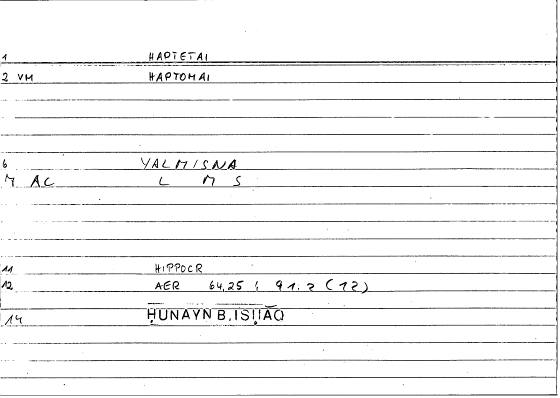 1 HAPTETAI
2 VM HAPTOMAI
6 YALMISNA
7 AC L M S
11 HIPPOCR
12 AER 64,25 ; 91.2 (12)
14 ḤUNAYN B. ISḤĀQ